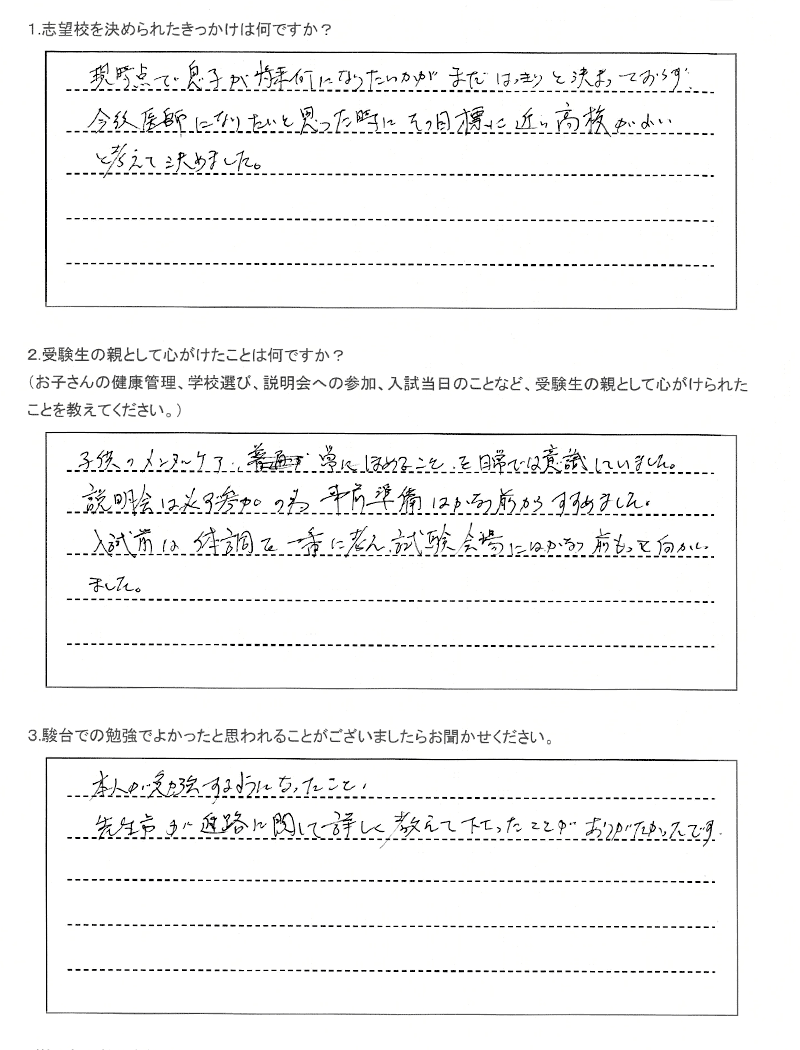 1.志望校を決められたきっかけは何ですか？
現時点で息子が将来何になりたいかがまだはっきりと決まっておらず、
今後医師になりたいと思った時にその目標に近い高校がよい
と考えて決めました。
2.受験生の親として心がけたことは何ですか？
（お子さんの健康管理、学校選び、説明会への参加、入試当日のことなど、受験生の親として心がけられた
ことを教えてください。）
子供のメンタルケア、常にほめることを日常では意識していました。
説明会は必ず参加の為、事前準備はかなり前からすすめました。
入試前は体調を一番に考え、試験会場にはかなり前もって向かい
ました。
3.駿台での勉強でよかったと思われることがございましたらお聞かせください。
本人が勉強するようになったこと、
先生方が進路に関して詳しく教えて下さったことがありがたかったです。